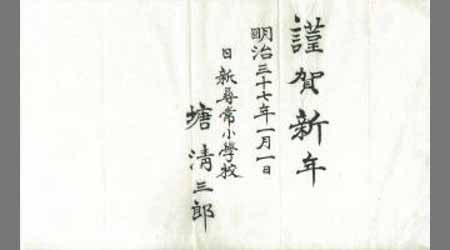 謹賀新年
明治三十七年一月一日
日新尋常小學校
塘清三郎